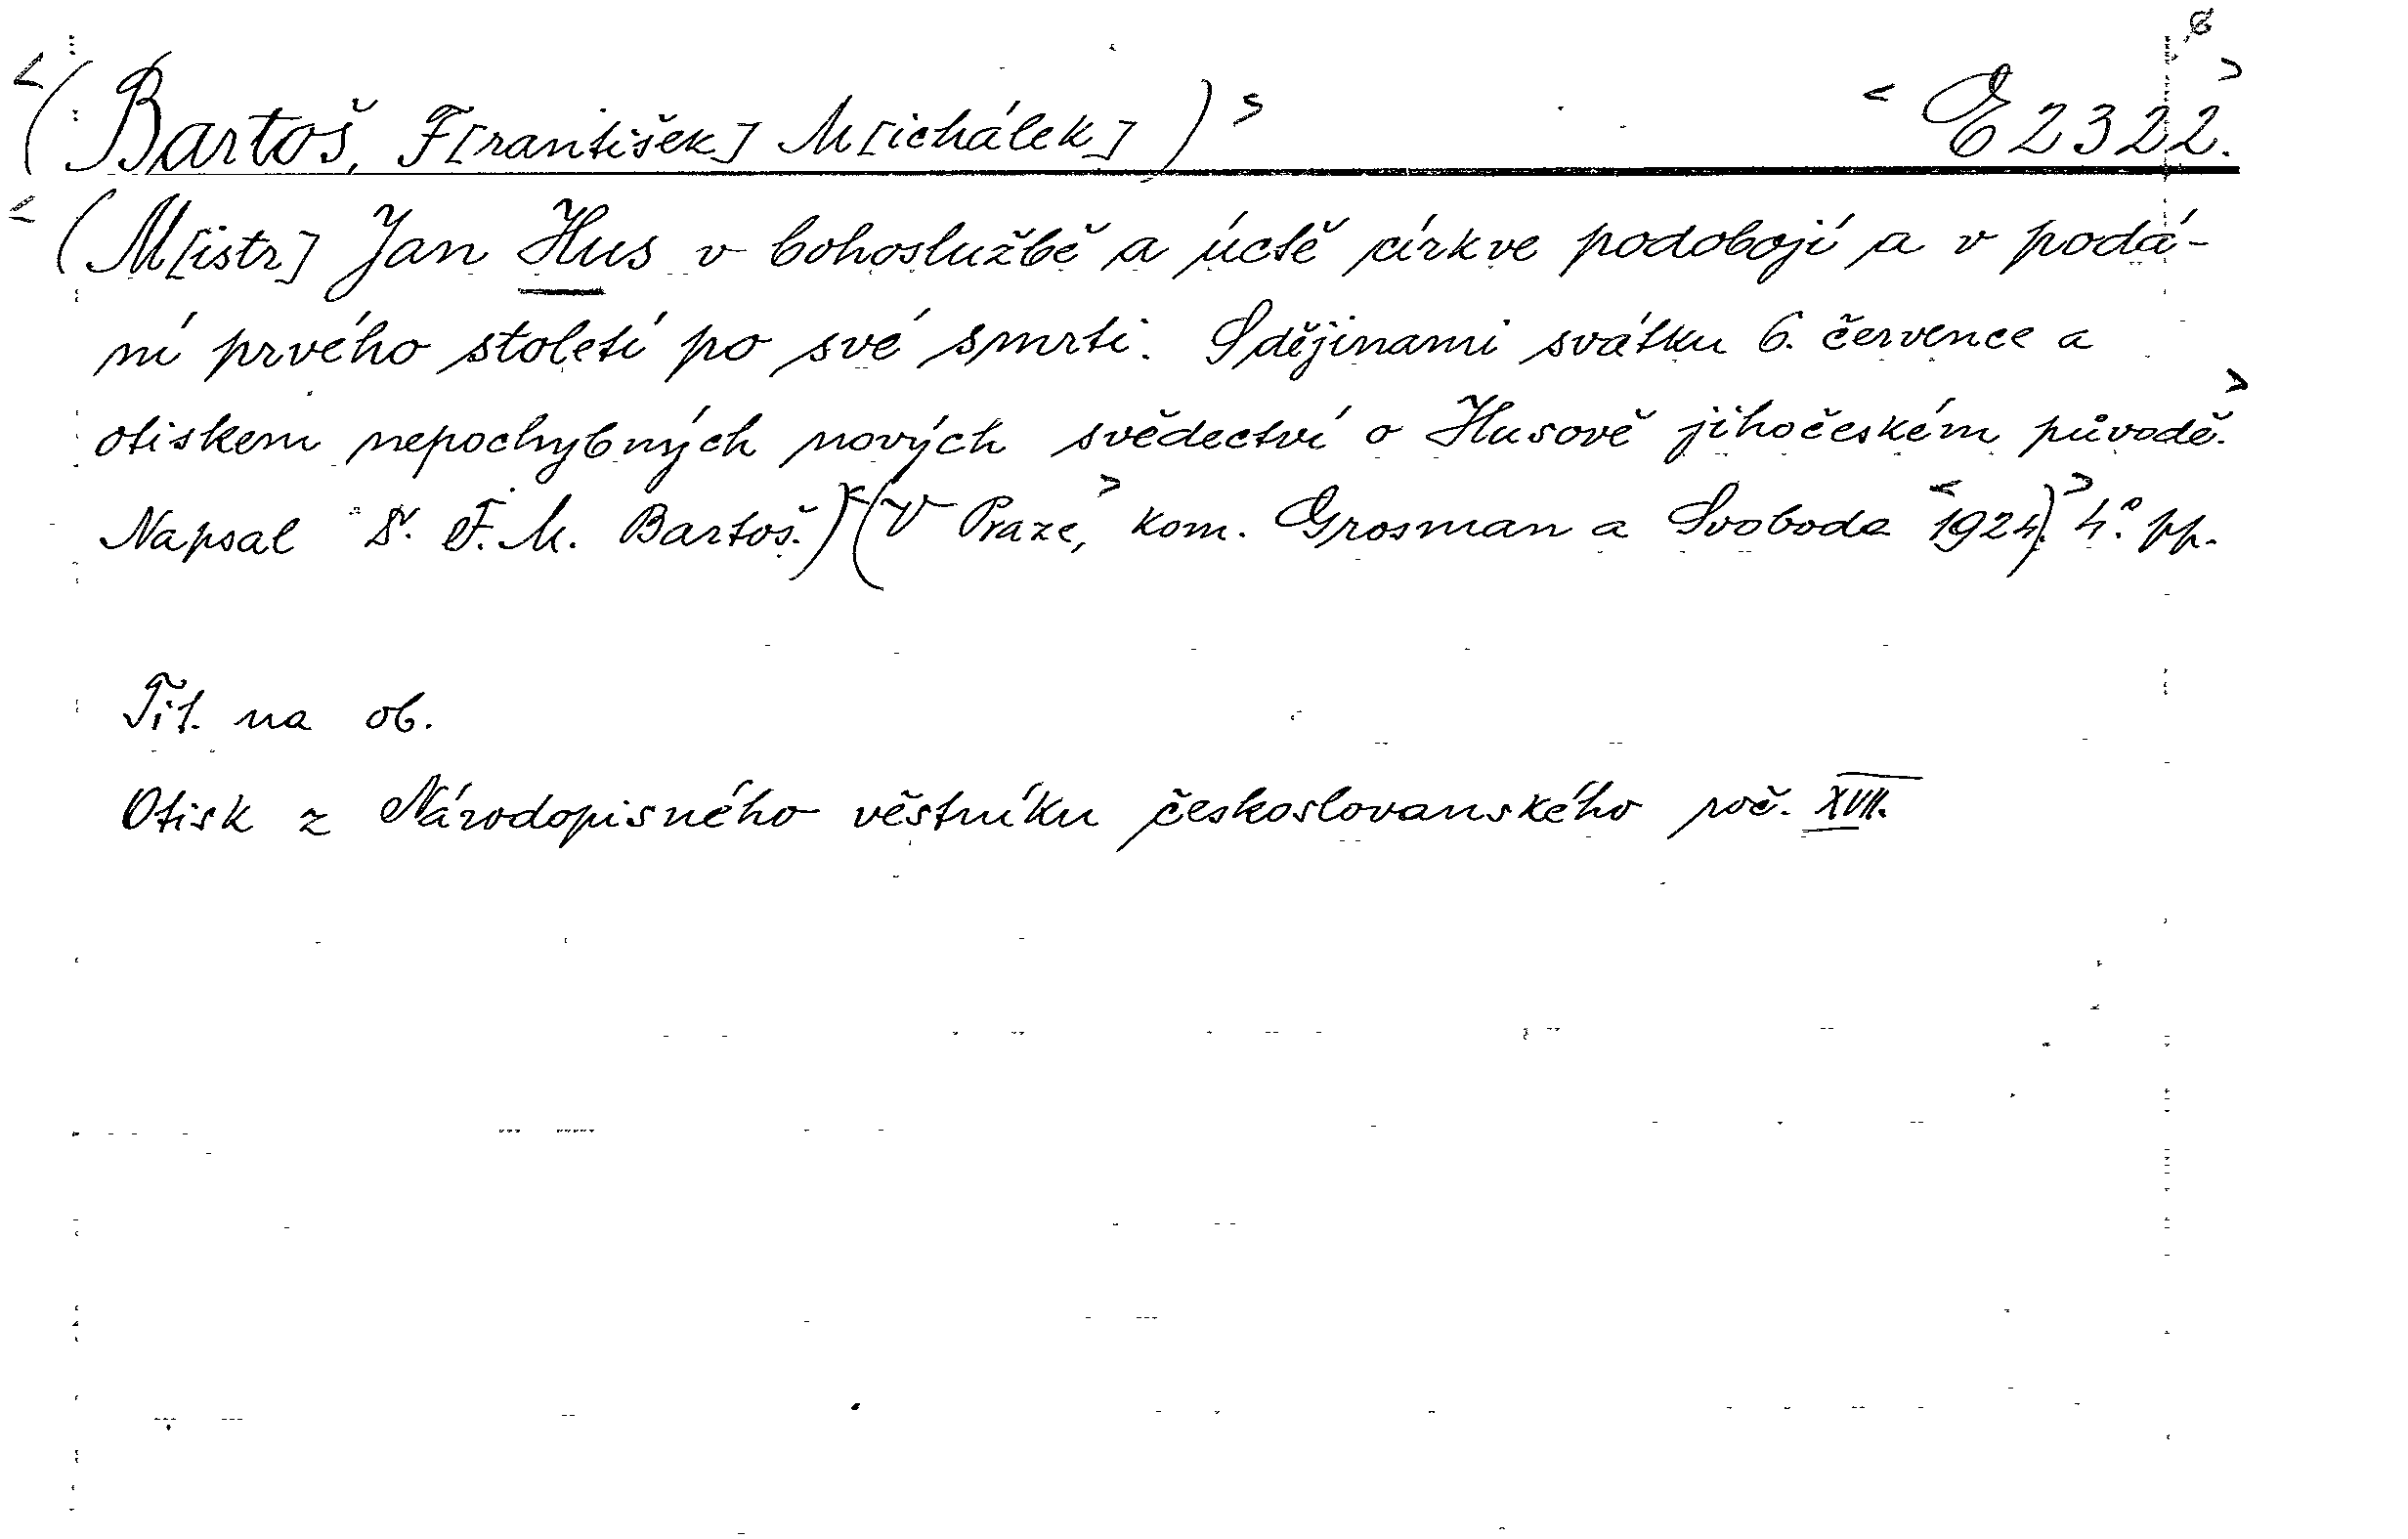 <(Bartoš, F[rantišek] M[ichálek])> <E 2322.>
<(M[istr] Jan Hus v bohoslužbě a úctě církve podobojí a v podá-
ní prvého století po své smrti. S dějinami svátku 6. července a
otiskem nepochybných nových svědectví o Husově jihočeském původě.>
Napsal Dr. F. M. Bartoš.)<(V Praze,> kom. Grosman a Svoboda <1924).> 4°. pp.
Tit. na ob.
Otisk z Národopisného věstníku českoslovanského roč. XVII.